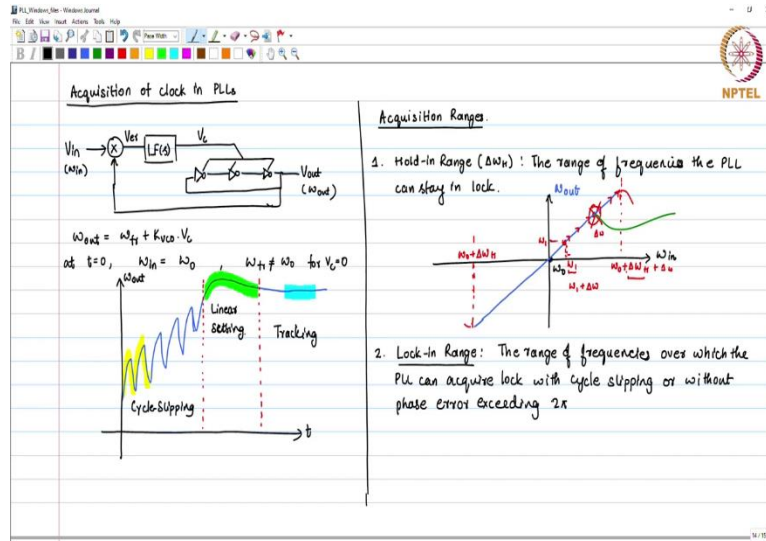 PLL_Windows_Nee - Windows Journal
File Edit View Insert Actions Tools Help
Page Width
B I
NPTEL
Acquisition of clock in PLLs
Vin
(ωin)
Ver
LF(s)
Vc
Vout
(ωout)
ωout = ωfr + Kvco.Vc
at t=0, ωin = ω0, ωfr ≠ ω0 for Vc=0
ωout
Linear
Settling
Tracking
Cycle-Slipping
t
Acquisition Ranges.
1. Hold-in Range (ΔωH) : The range of frequencies the PLL
can stay in lock.
ωout
Δω
ω1
ω0+ΔωH
ω0
ω1
ω1+Δω
ωin
ω0+ΔωH+Δω
2. Lock-in Range: The range of frequencies over which the
PLL can acquire lock with cycle slipping or without
phase error exceeding 2π